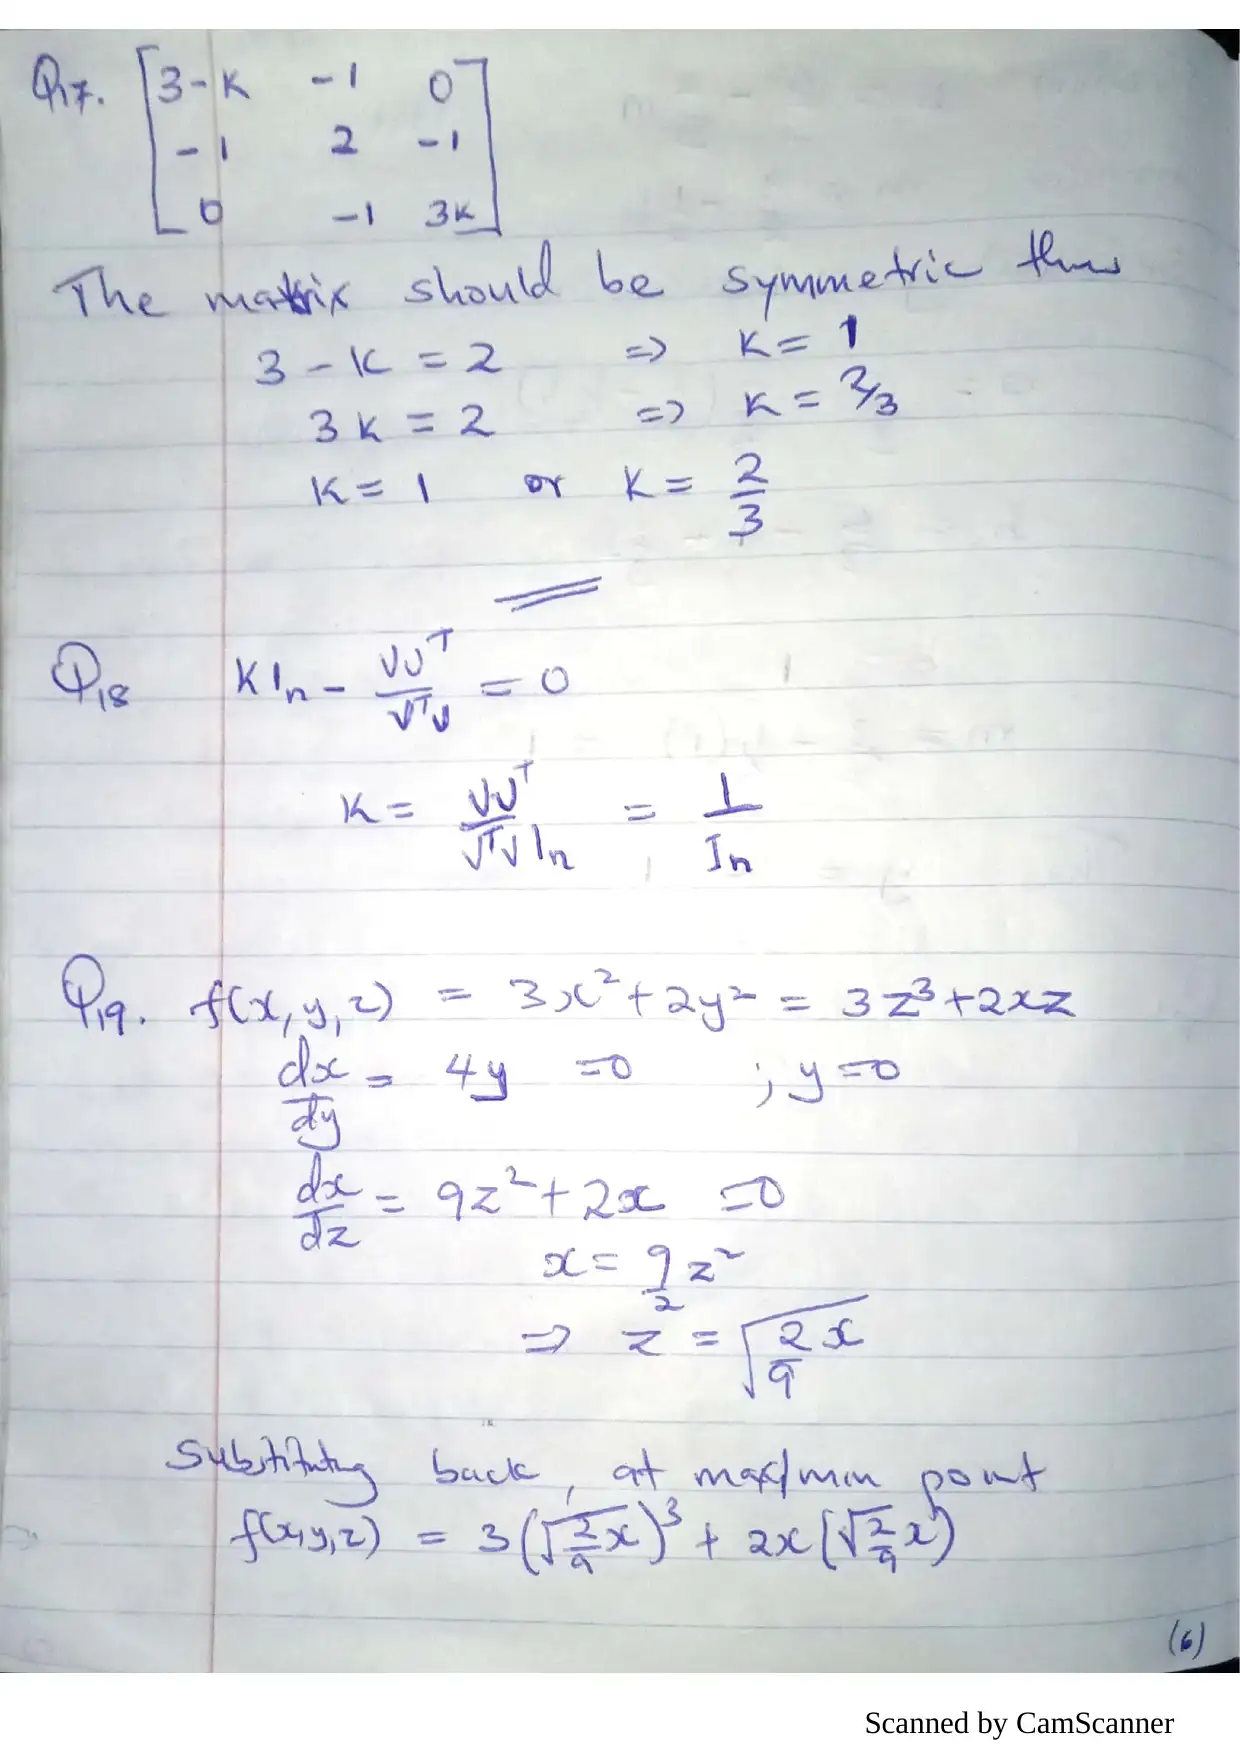 Q17. [3-K -1 0
-1 2 -1
0 -1 3K]
The matrix should be symmetric thus
3 - K = 2 => K = 1
3K = 2 => K = 2/3
K = 1 or K = 2/3
Q18 K In - VVᵀ/VᵀV = 0
K = VVᵀ/VᵀV In = 1/In
Q19. f(x,y,z) = 3x² + 2y² = 3z³ + 2xz
dx/dy = 4y =0 ; y=0
dx/dz = 9z² + 2x =0
x = 9/2 z²
=> z = √(2/9 x)
Substituting back, at max/min point
f(x,y,z) = 3(√(2/9 x))³ + 2x(√(2/9 x))
(6)
Scanned by CamScanner